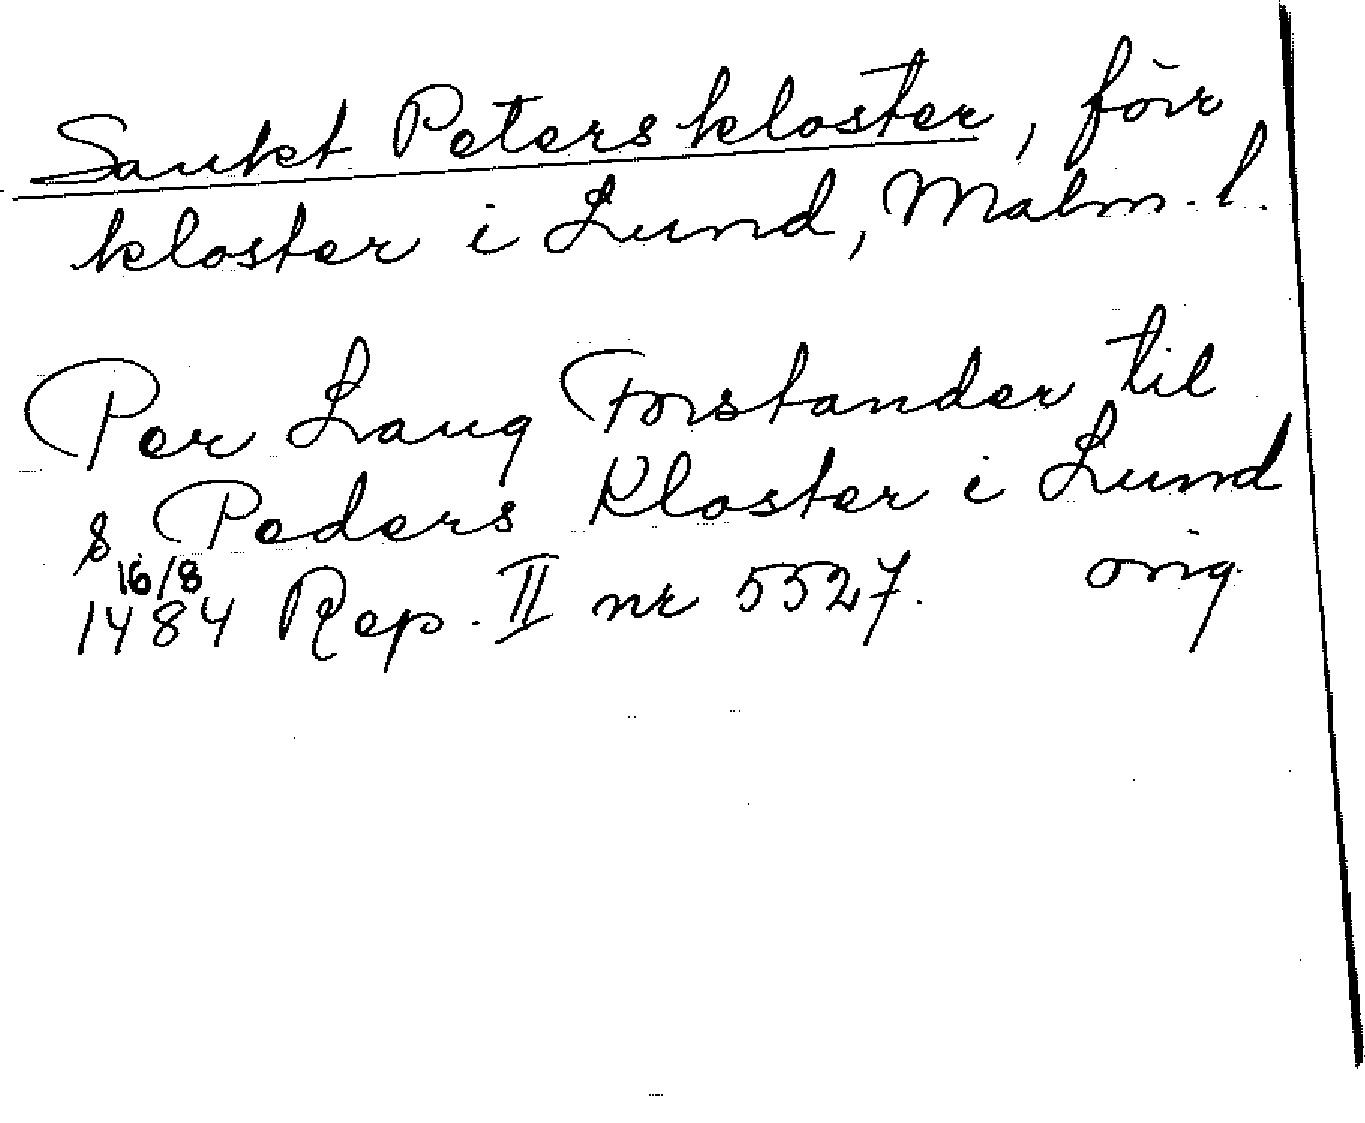 Sankt Peters kloster, förr
kloster i Lund, Malm. l.
Per Laug Forstander til
s Peders Kloster i Lund
16/8
1484 Rep. II nr 5527. orig.